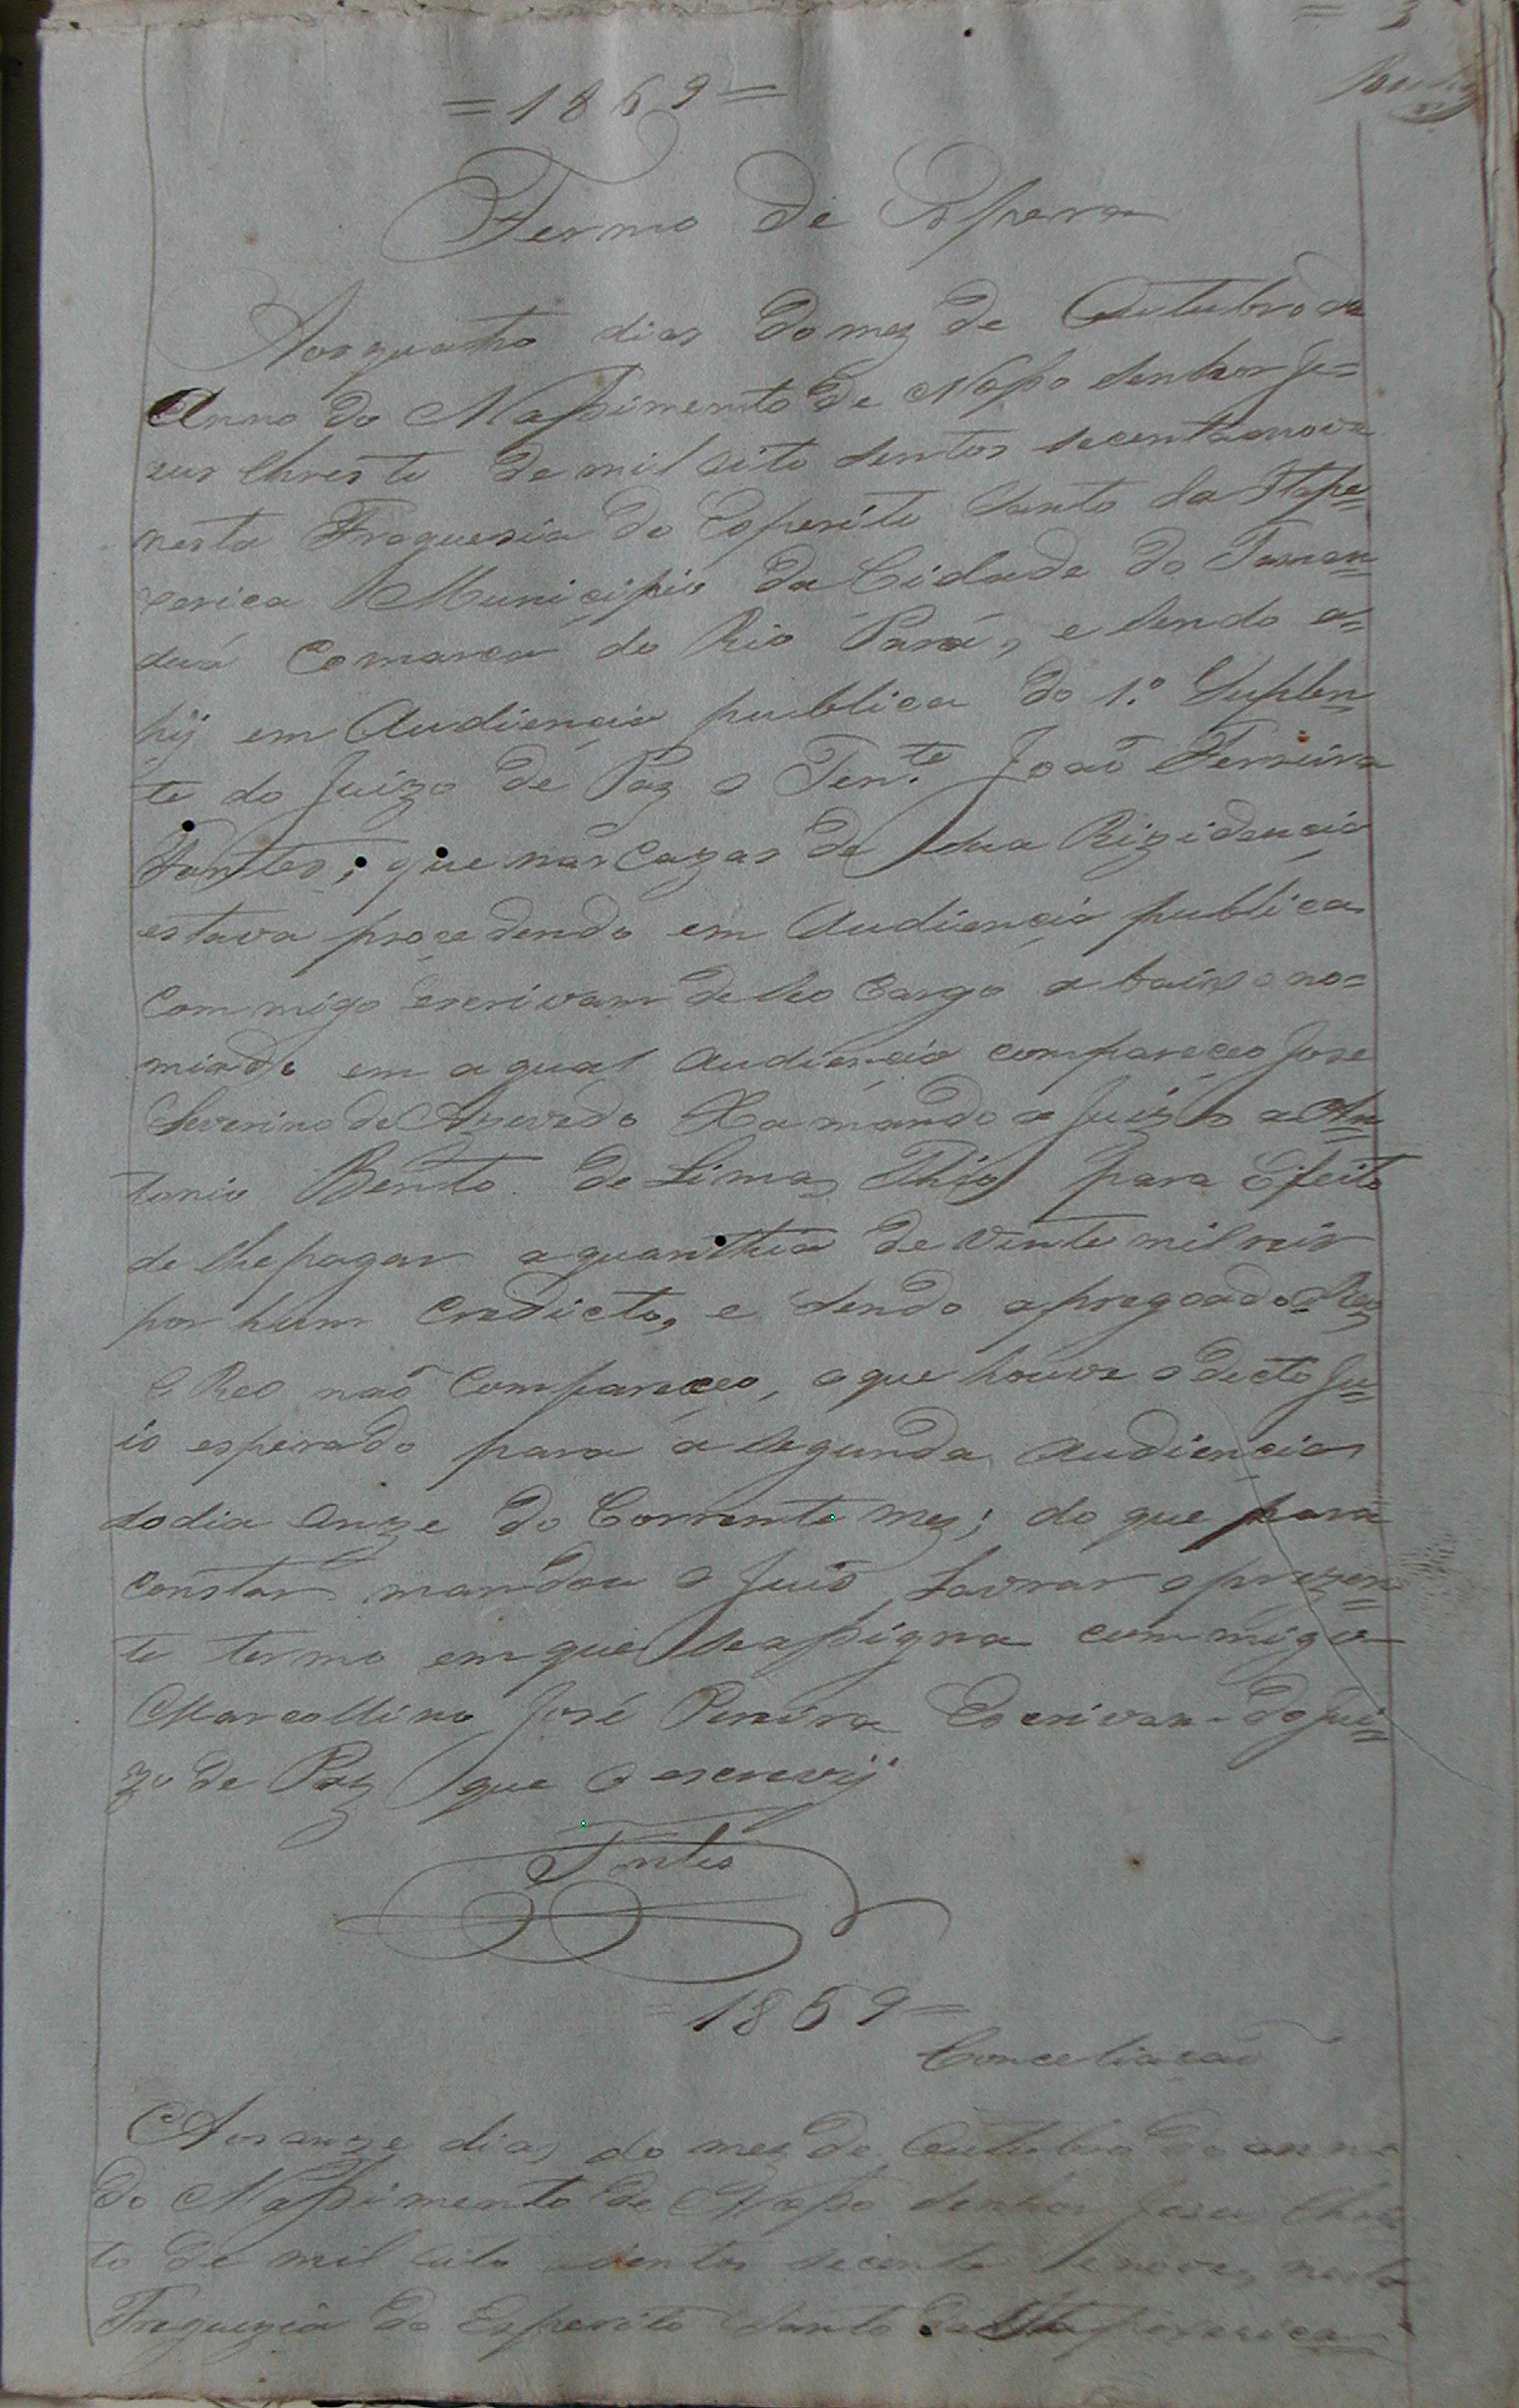 = 3
= 1869 =
Termo de Espera
Aos quatro dias do mez de Outubro do
Anno do Nassimento de Nosso Senhor Je=
zus Chresto de mil oito sentos secenta e nove
nesta Fraguesia do Esperito Santo da Itape=
cerica Municipio da Cidade do Taman=
duá Comarca do Rio Pará, e sendo a=
hij em Audiencia publica do 1.º Suplen=
te do Juizo de Paz o Ten.te João Ferreira
Fontes; que nas Cazas de sua Rizidencia
estava procedendo em Audiencia publica
Commigo escrivam de seo Cargo abaixo no=
miado em a qual Audiencia compareceo Jose
Severino de Azevedo Xamando a Juizo a An=
tonio Bento de Lima, para Efeito
de lhe pagar a quanthia de vinte mil reis
por hum Credicto, e sendo apregoado o Reo
O Reo não Compareceo, o que houve o decto Ju=
is esperado para a segunda Audiencia
do dia Onze do Corrente mez; do que para
constar mandou o Juis Lavrar o prezen=
te termo em que se assigna commigo
Marcollino José Pereira Escrivan do Jui=
zo de Paz que o escrevij
Fontes
= 1869 =
Conceliação
Aos onze dias do mez de Outubro do anno
do Nassimento de Nosso Senhor Jesu Chris
to de mil oito sentos secenta e nove, nesta
Freguezia do Esperito Santo da Itapecerica